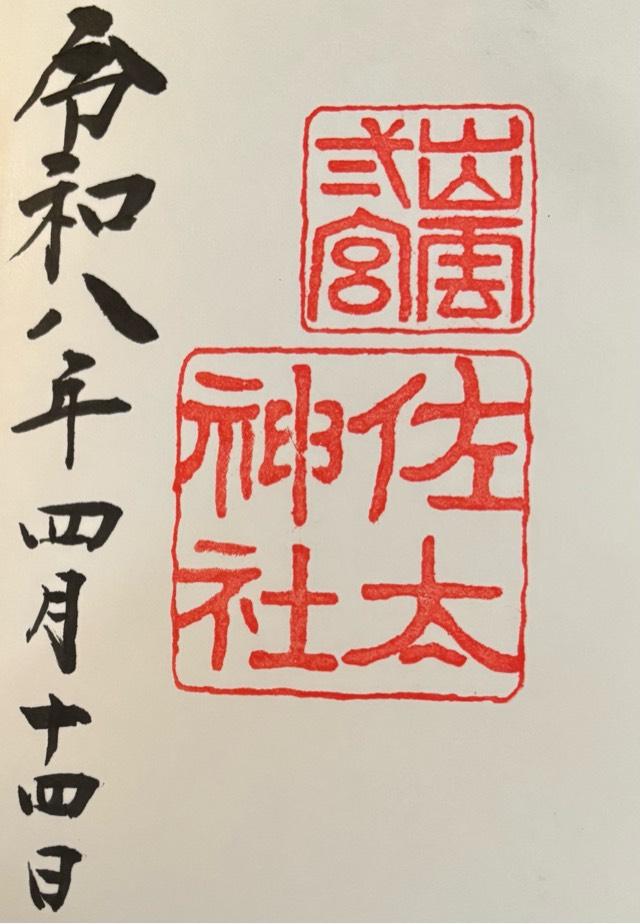 出雲
弍宮
佐太
神社
令和八年四月十四日